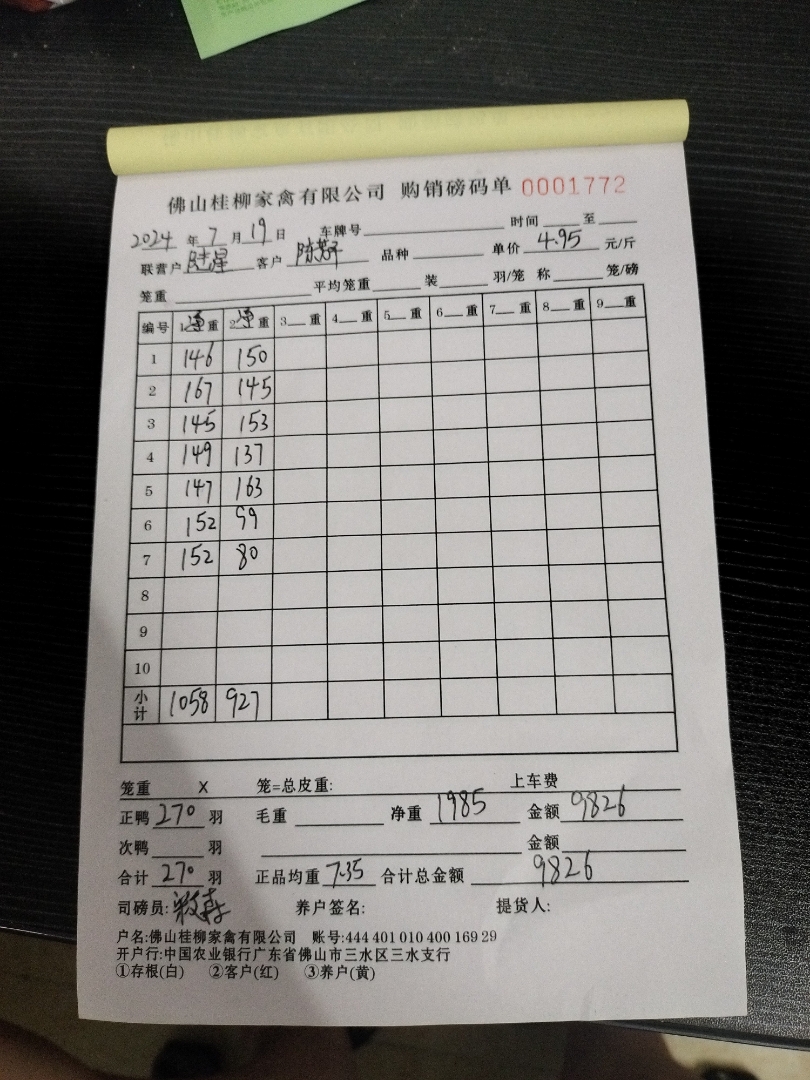 佛山桂柳家禽有限公司 购销磅码单 0001772
2024 年 7 月 19 日 车牌号 时间 至
联营户 客户 品种 单价 4.95 元/斤
笼重 平均笼重 装 羽/笼 称 笼/磅
编号 1净重 2净重 3 重 4 重 5 重 6 重 7 重 8 重 9 重
1 146 150
2 167 145
3 145 153
4 149 137
5 147 163
6 152 99
7 152 80
8
9
10
小计 1058 927
笼重 X 笼=总皮重: 上车费
正鸭 270 羽 毛重 净重 1985 金额 9826
次鸭 羽 金额
合计 270 羽 正品均重 7.35 合计总金额 9826
司磅员: 养户签名: 提货人:
户名:佛山桂柳家禽有限公司 账号:444 401 010 400 169 29
开户行:中国农业银行广东省佛山市三水区三水支行
①存根(白) ②客户(红) ③养户(黄)